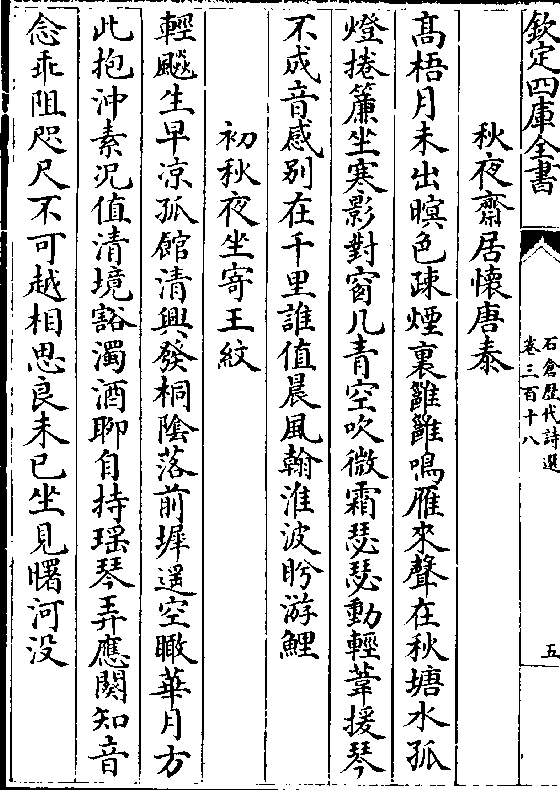 欽定四庫全書
石倉歴代詩選
卷三百十八
五
秋夜齋居懷唐泰
髙梧月未出暝色疎煙裏雝雝鳴雁來聲在秋塘水孤
燈捲簾坐寒影對窗几青空吹微霜瑟瑟動輕葦援琴
不成音感别在千里誰值晨風翰淮波盻游鯉
初秋夜坐寄王紋
輕飈生早凉孤館清興發桐隂落前墀遥空瞰華月方
此抱沖素況值清境豁濁酒聊自持瑶琴弄應闋知音
念乖阻咫尺不可越相思良未已坐見曙河没